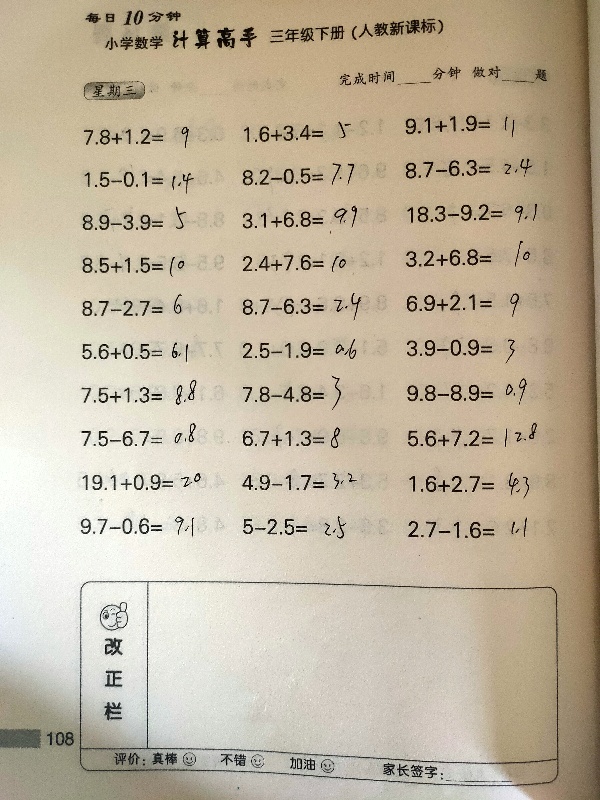 每日10分钟
小学数学 计算高手 三年级下册(人教新课标)
星期三 完成时间____分钟 做对____题
7.8+1.2= 9 1.6+3.4= 5 9.1+1.9= 11
1.5-0.1= 1.4 8.2-0.5= 7.7 8.7-6.3= 2.4
8.9-3.9= 5 3.1+6.8= 9.9 18.3-9.2= 9.1
8.5+1.5= 10 2.4+7.6= 10 3.2+6.8= 10
8.7-2.7= 6 8.7-6.3= 2.4 6.9+2.1= 9
5.6+0.5= 6.1 2.5-1.9= 0.6 3.9-0.9= 3
7.5+1.3= 8.8 7.8-4.8= 3 9.8-8.9= 0.9
7.5-6.7= 0.8 6.7+1.3= 8 5.6+7.2= 12.8
19.1+0.9= 20 4.9-1.7= 3.2 1.6+2.7= 4.3
9.7-0.6= 9.1 5-2.5= 2.5 2.7-1.6= 1.1
改
正
栏
108
评价: 真棒 不错 加油 家长签字: